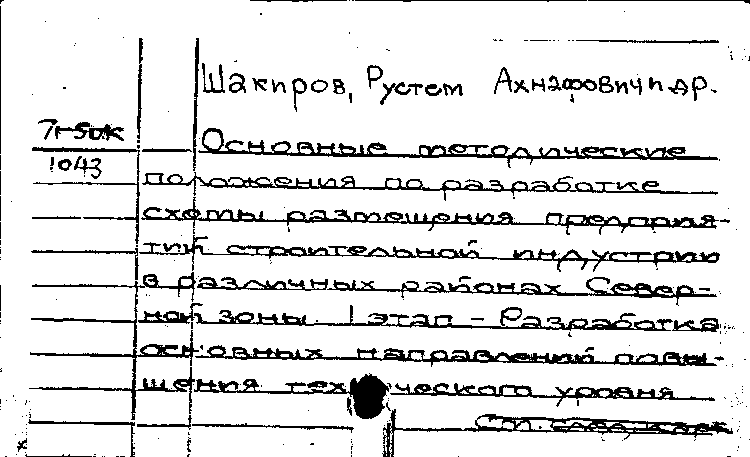 Шакиров, Рустем Ахнафович и др.
1043
Основные методические
положения по разработке
схемы размещения предприя-
тий строительной индустрии
в различных районах Север-
ной зоны. I этап - Разработка
основных направлений повы-
шения технического уровня
См. след. карт